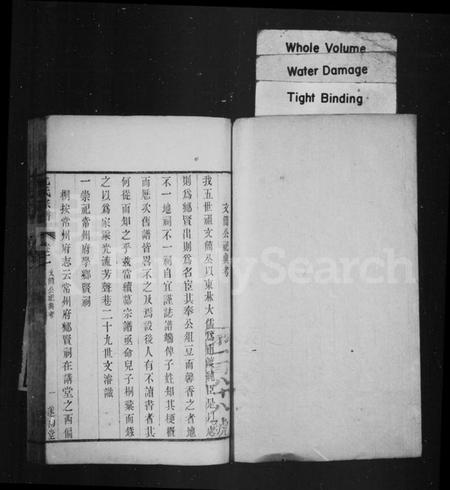 Whole Volume
Water Damage
Tight Binding
文簡公祀典考
我五世祖文簡公以東林大儒
則爲鄉賢出則爲名臣其奉公俎豆而馨香之者地
不一地祠不一祠自宜謹誌譜端俾子姓知其梗概
而歷次舊譜皆畧不之及焉設後人有不讀書者其
何從而知之乎茲當續纂宗譜亟命兒子桐彙而錄
之以爲家乘光流芳聲巷二十九世文濬識
一崇祀常州府學鄉賢祠
桐按常州府志云常州府鄉賢祠在講堂之西偏
文簡公祀典考
一
MySearch